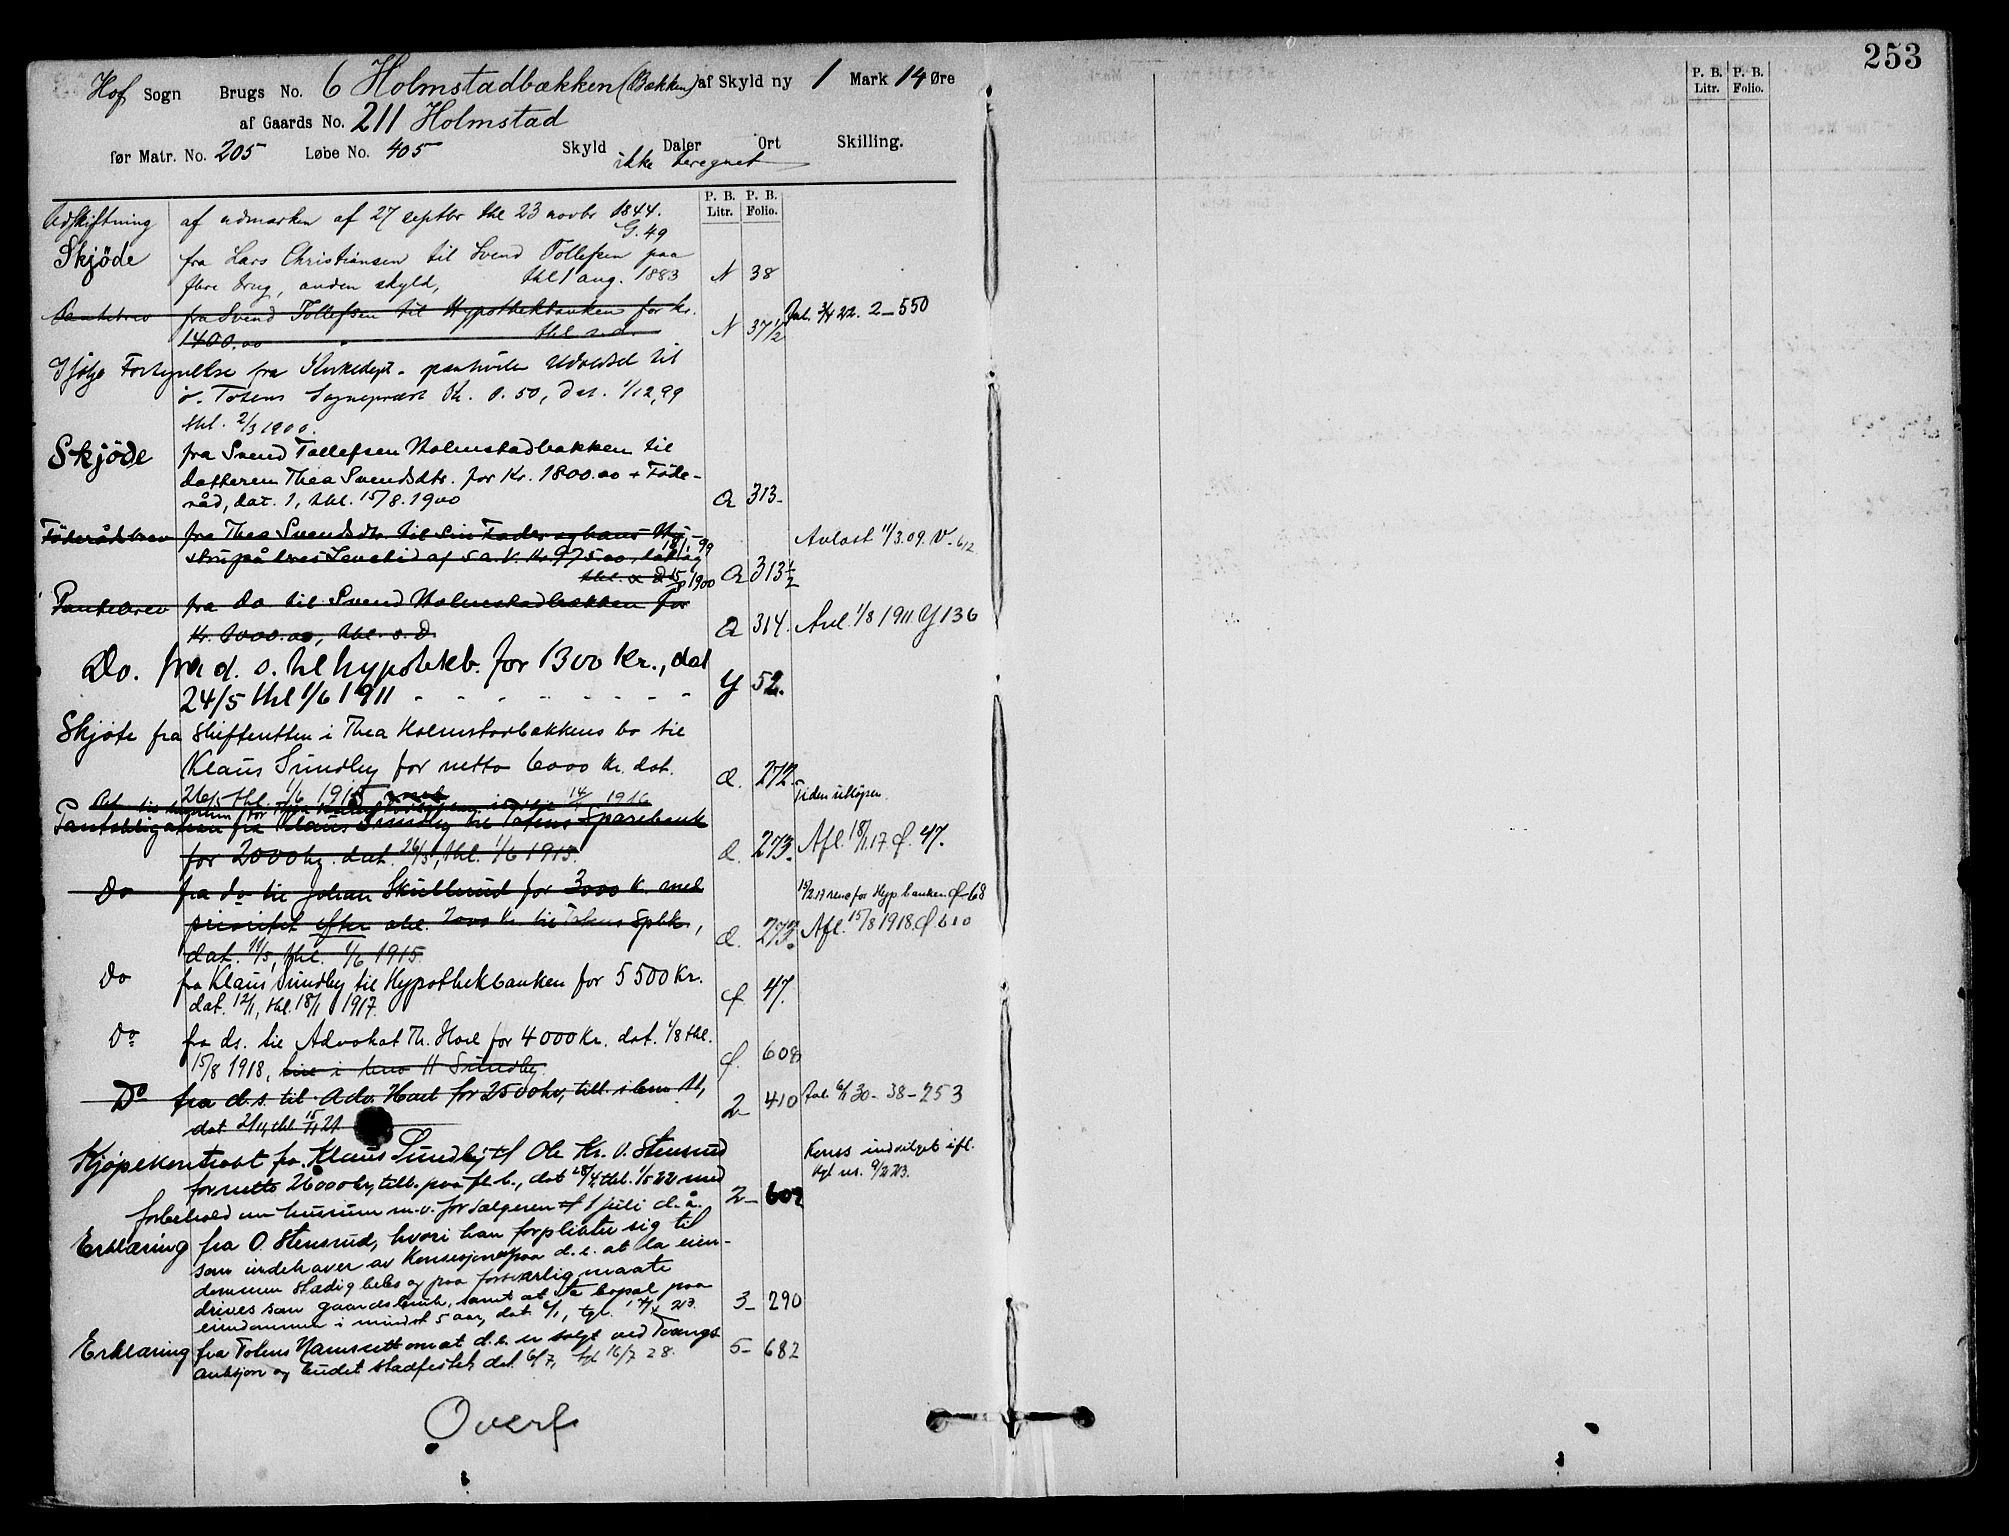 253
Hof Sogn Brugs No. 6 Holmstadbækken (Bækken) af Skyld ny 1 Mark 14 Øre
af Gaards No. 211 Holmstad
før Matr. No. 205 Løbe No. 405 Skyld Daler Ort Skilling.
ikke beregnet
P. B. Litr. P. B. Folio.
P. B. Litr. P. B. Folio.
Udskiftning af udmarken af 27 septbr thl 23 novbr 1844.
G. 49
Skjöde fra Lars Christiansen til Svend Tollefsen paa
flere brug, anden skyld, thl 1 aug. 1883 N 38
Pantebrev fra Svend Tollefsen til Hypothekbanken for kr.
1400.00 " thl s.d. N 37½ 22. 2-550
Ifølge Fortegnelse fra
ö. Totens Sogneprest Kr. 0.50, dat. 1/12,99
thl. 2/3 1900.
Skjöde fra Svend Tollefsen Holmstadbækken til
datteren Thea Svendsdtr. for Kr. 1800.00 + Föde-
råd, dat. 1, thl. 15/8. 1900 Q 313-
Föderådsbrev fra Thea Svendsdtr. til Sin Fader og hans Hu-
stru på Levetid af 5 a. V. Kr 975.00, dat 18/1-99
thl. 15/8 1900 Q 313½ Avlöst 11/3.09. V-612
Pantebrev fra do til Svend Holmstadbækken for
Kr. 1000.00, thl. s. D. Q 314. Avl. 1/8 1911 Y 136
Do. fra d. s. til hypothekb. for 1300 Kr., dat
24/5 thl 1/6 1911 Y 52.
Skjöte fra Skifteretten i Thea Holmstadbækkens bo til
Klaus Sundby for netto 6000 Kr. dat.
26/5 thl. 1/6 1915 d. 272.
14/ 1916 Tiden utlöpen
Pantobligation fra Klaus Sundby til Totens Sparebank
for 2000 kr. dat. 26/5, thl. 1/6 1915. d. 273. Afl. 18/1.17 f. 47.
Do fra do til Johan Skullerud for 3000 k. med
prioritet efter obl. 2000 kr til Totens Spbk, for Hypbanken f 68
dat. 11/5, thl. 1/6 1915. d. 273. Afl. 15/8 1918. f. 610
Do fra Klaus Sundby til Hypothekbanken for 5500 Kr.
dat. 12/1, thl. 18/1 1917. f. 47.
Do fra ds. til Advokat Th. Hoel for 4000 Kr. dat. 1/8 thl.
15/8 1918, H Sundby f. 608
Do fra d.s. til Adv. Hoel for 2500 kr, till. ilem H,
dat 2/11, thl 15/11 21 2- 410 Avl. 6/1 30- 38-253
Kjøpekontrakt fra Klaus Sundby til Ole Kr. O. Stensrud
for netto 26000 kr, till. paa fl. b., dat 28/4 thl. 1/5 22 med
forbehold om husrum m.v. for sælgeren til 1 juli d. å. 2- 602 Konss indvilget ifl.
tgl us. 9/2 23.
Erklæring fra O. Stensrud, hvori han forplikter sig til
som indehaver av Konsesjon paa d. e. at la eien-
dommen stadig bebo og paa forsvarlig maate
drives som gaardsbruk, samt at ta bopæl paa
eiendommen i mindst 5 aar, dat 6/1, tgl. 23. 3- 290
Erklæring fra Totens Namsrett om at d. e. er solgt ved Tvangs
auksjon og budet stadfestet dat. 6/7, tgl 16/7 28. 5- 682
Overf